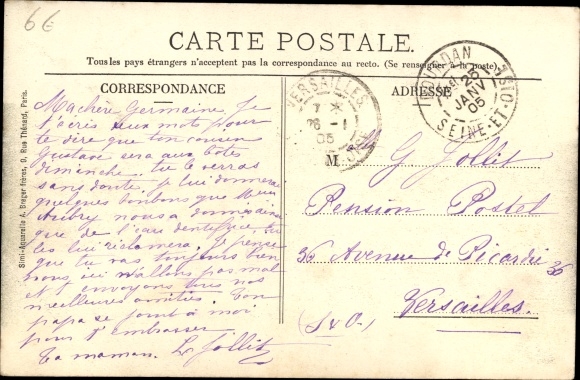 6€
CARTE POSTALE.
Tous les pays étrangers n'acceptent pas la correspondance au recto. (Se renseigner à la poste)
CORRESPONDANCE
Ma chère Germaine, Je
t'écris deux mots pour
te dire que ton cousin
Gustave sera aux
dimanche. tu le verras
sans doute. Je lui donnerai
quelques bonbons que Mme
Aubry nous a donné ainsi
que de l'eau dentifrice, tu
les lui réclamera. Je pense
que tu vas toujours bien
nous, ici n'allons pas mal
et t'envoyons tous nos
meilleures amitiés. Ton
papa se joint à moi
pour t'embrasser
Ta maman. L Jollit
Simi-Aquarelle A. Breger frères, 9, Rue Thénard, Paris.
ADRESSE
VERSAILLES
7
26 - 1
05
DOURDAN
25
JANV
05
SEINE-ET-OISE
M lle G Jollit
Pension Postel
36 Avenue de Picardie 36
Versailles.
(S & O.)